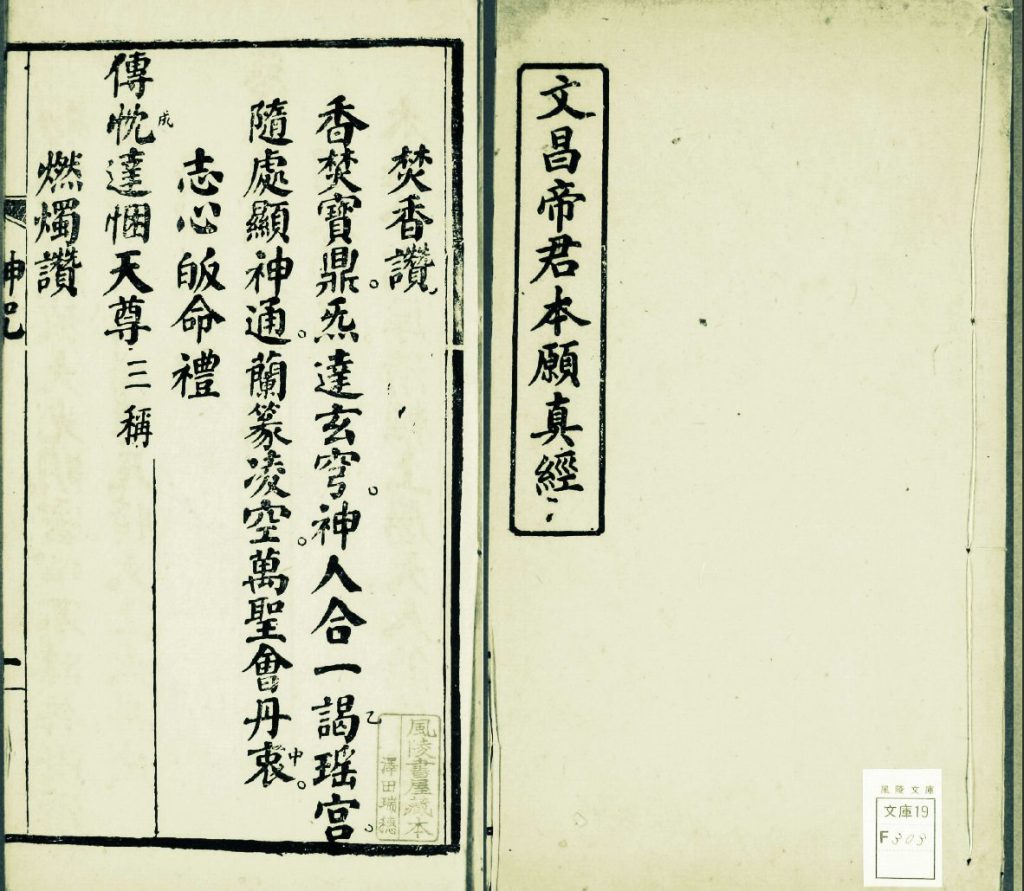 文昌帝君本願真經
風陵文庫
文庫19
F
焚香讚
香焚寶鼎。炁達玄穹。神人合一謁乙瑶宮。
隨處顯神通。蘭篆凌空。萬聖會丹衷中。
志心皈命禮
傳忱成達悃天尊三稱
燃燭讚
神咒
一
風陵書屋藏本
澤田瑞穗